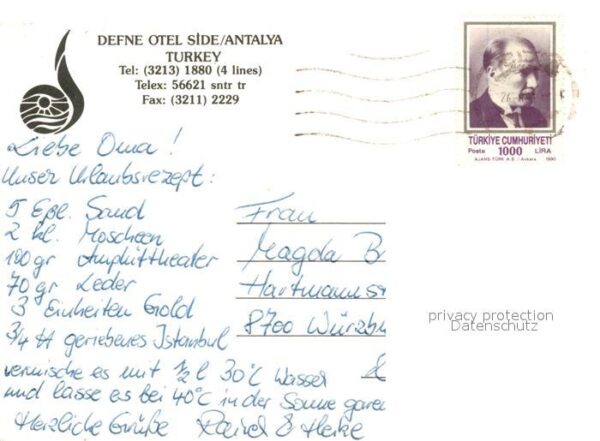 DEFNE OTEL SİDE/ANTALYA
TURKEY
Tel: (3213) 1880 (4 lines)
Telex: 56621 sntr tr
Fax: (3211) 2229
TÜRKİYE CUMHURİYETİ
Posta 1000 LİRA
AJANS-TÜRK A.Ş. / Ankara 1990
Liebe Oma!
Unser Urlaubsrezept:
5 Eßl. Sand
2 kl. Moscheen
100 gr Amphittheater
70 gr Leder
3 Einheiten Gold
3/4 ℔ geriebenes Istanbul
vermische es mit 1/2 l 30°C Wasser
und lasse es bei 40°C in der Sonne garen
Herzliche Grüße & Heike
Frau
Magda B
Hartmannst
8700 Würzbu
privacy protection
Datenschutz